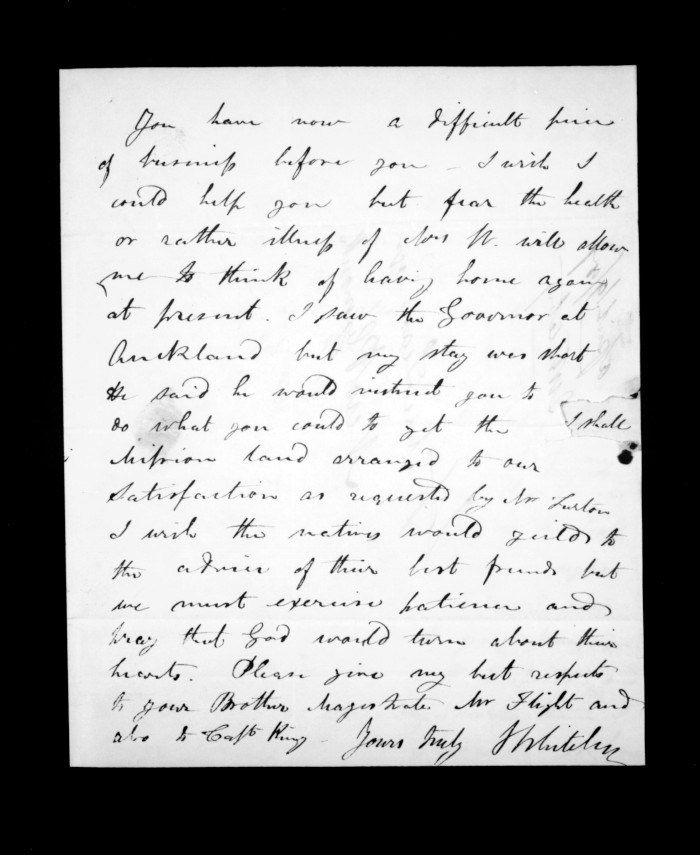 You have now a difficult piece
of business before you - I wish I
could help you but fear the health
or rather illness of Mrs W. will allow
me to think of leaving home again
at present. I saw the Governor at
Auckland but my stay was short
He said he would instruct you to
do what you could to get the I shall
Mission land arranged to our
Satisfaction as requested by Mr Turton
I wish the natives would yield to
the advice of their best friends but
we must exercise patience and
pray that God would turn about their
hearts. Please give my best respects
to your Brother Magistrate Mr Flight and
also to Capt King - Yours truly J Whiteley